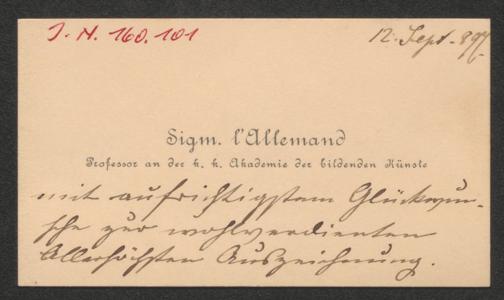 J. N. 160.101
12. Sept. 897.
Sigm. l'Allemand
Professor an der k. k. Akademie der bildenden Künste
mit aufrichtigstem Glückwun-
sche zur wohlverdienten
Allerhöchsten Auszeichnung.